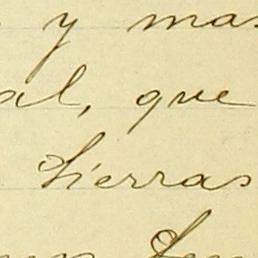 y mas
al, que
tierras